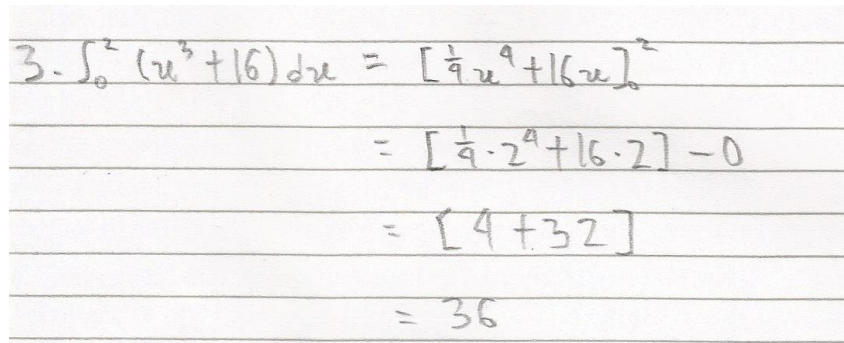 3. ∫₀² (x³ + 16) dx = [¼x⁴ + 16x]₀²
= [¼·2⁴ + 16·2] - 0
= [4 + 32]
= 36